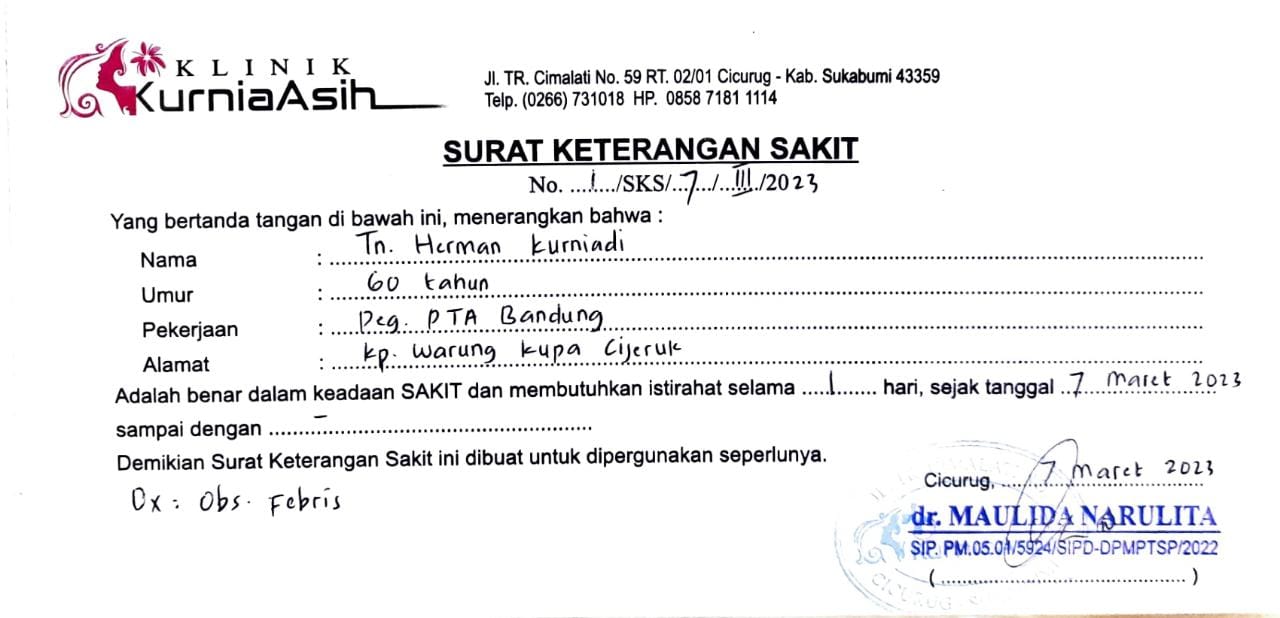 KLINIK
KurniaAsih
Jl. TR. Cimalati No. 59 RT. 02/01 Cicurug - Kab. Sukabumi 43359
Telp. (0266) 731018 HP. 0858 7181 1114
SURAT KETERANGAN SAKIT
No. ...1.../SKS/...7.../...III./2023
Yang bertanda tangan di bawah ini, menerangkan bahwa :
Nama : Tn. Herman Kurniadi
Umur : 60 tahun
Pekerjaan : Peg. PTA Bandung
Alamat : Kp. Warung Kupa Cijeruk
Adalah benar dalam keadaan SAKIT dan membutuhkan istirahat selama .....1....... hari, sejak tanggal ..7 Maret 2023
sampai dengan ...–...
Demikian Surat Keterangan Sakit ini dibuat untuk dipergunakan seperlunya.
Dx : Obs. Febris
Cicurug, 7 Maret 2023
dr. MAULIDA NARULITA
SIP. PM.05.01/5924/SIPD-DPMPTSP/2022
(..........................................)